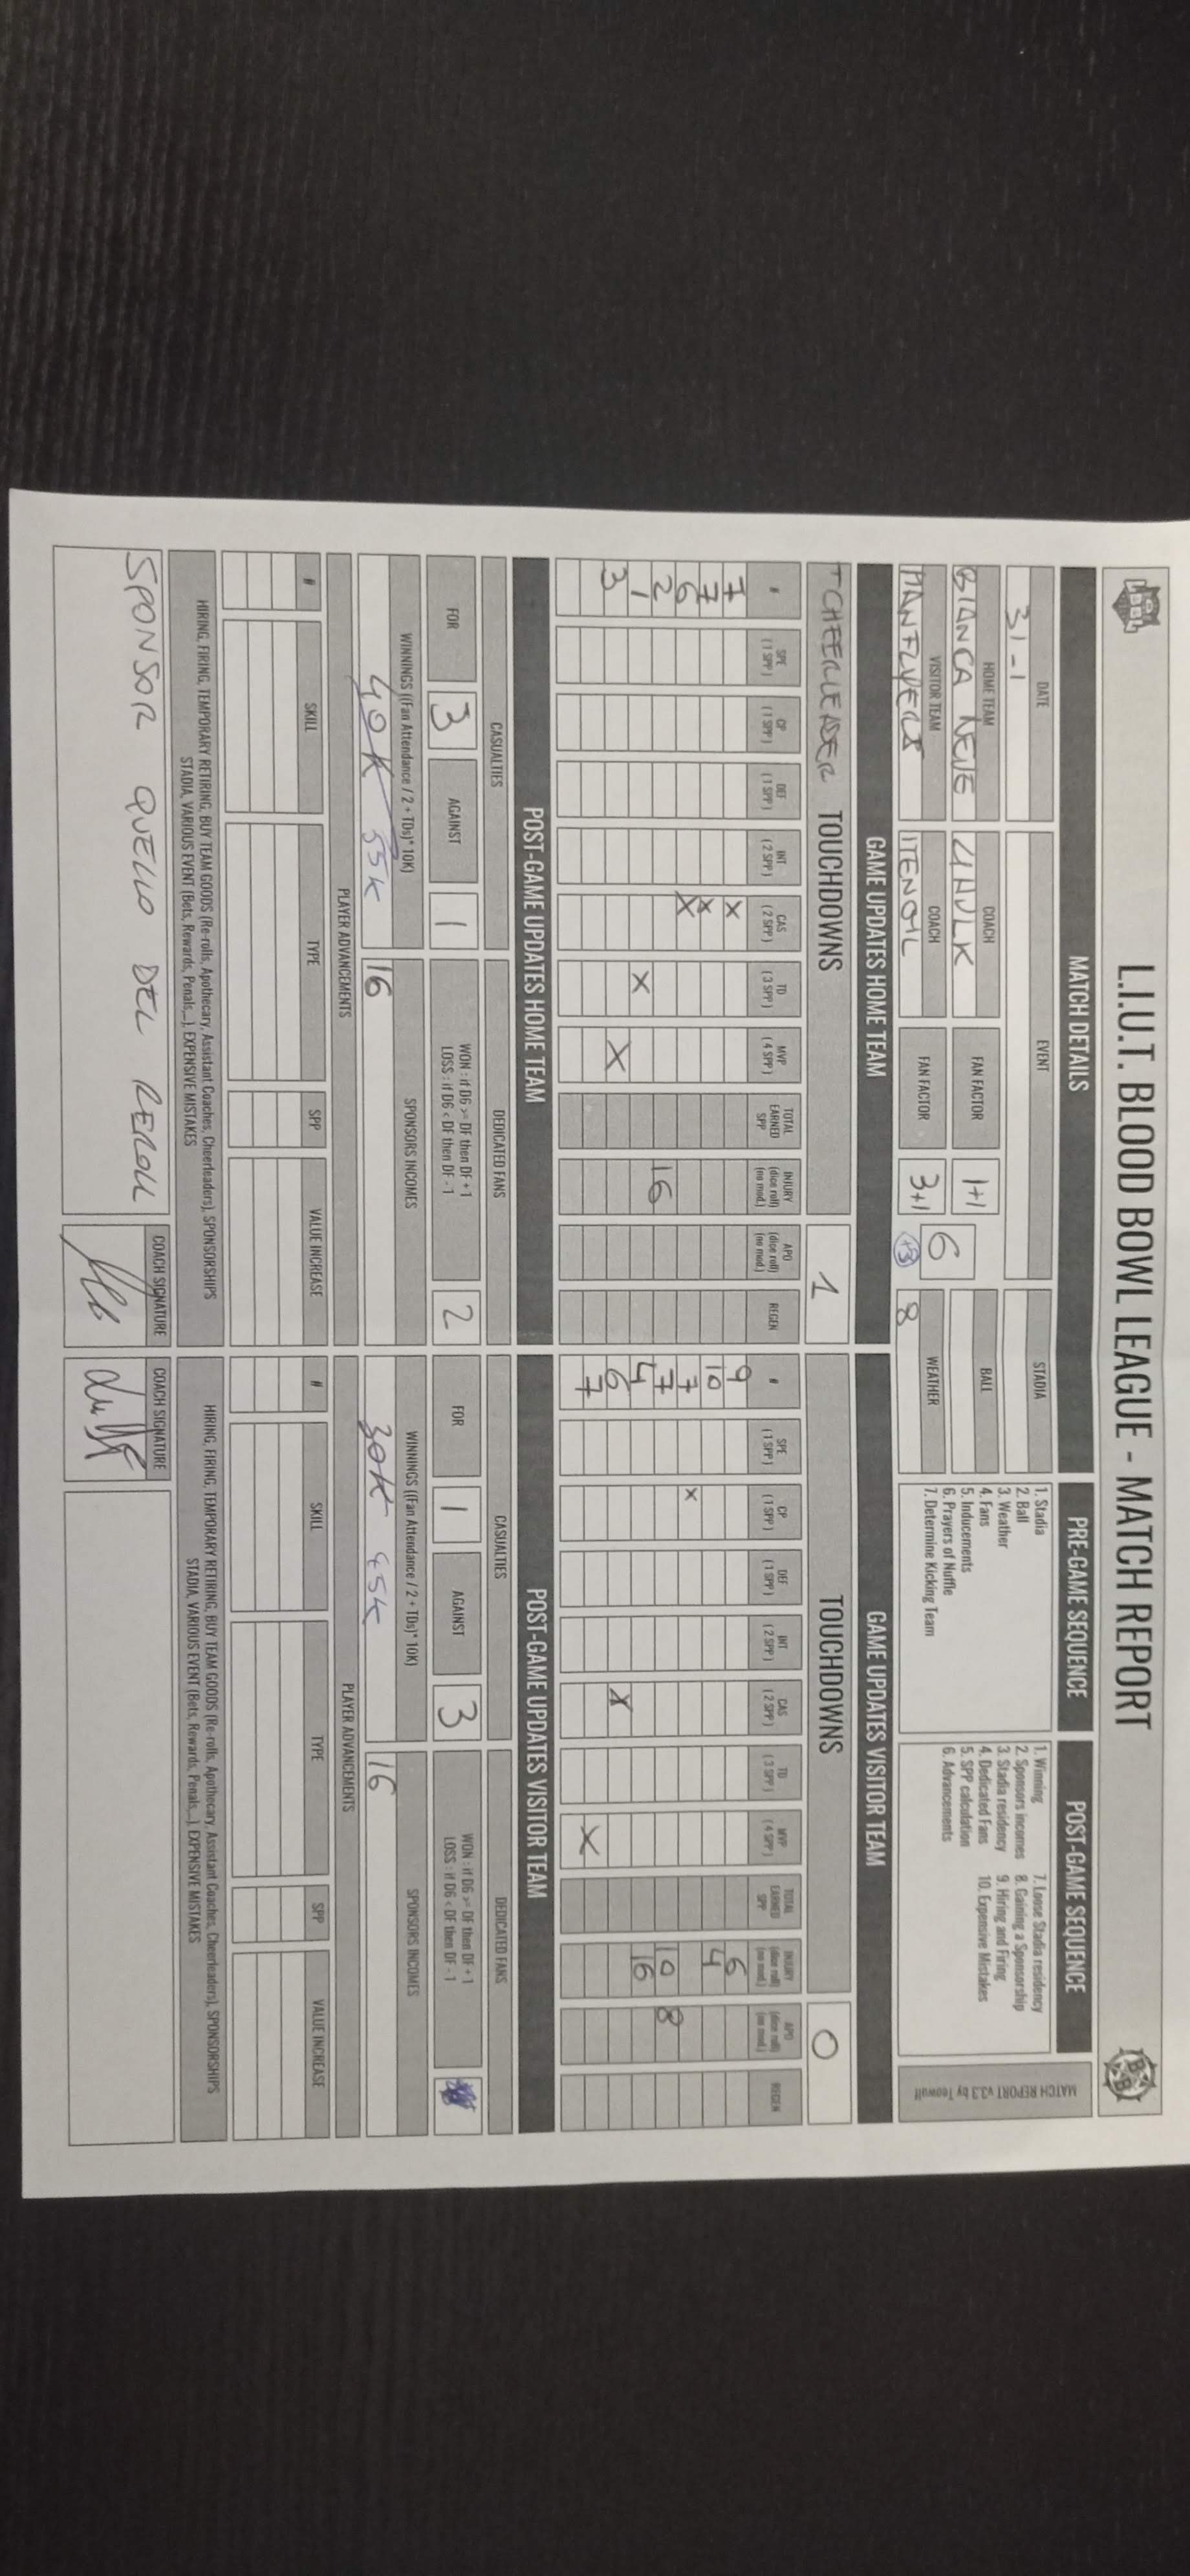 L.I.U.T. BLOOD BOWL LEAGUE - MATCH REPORT
MATCH DETAILS
PRE-GAME SEQUENCE
POST-GAME SEQUENCE
DATE
EVENT
STADIA
31-1
HOME TEAM
COACH
FAN FACTOR
BALL
BIANCA NEVE
1+1
6
VISITOR TEAM
COACH
FAN FACTOR
WEATHER
3+1
+3
8
1. Stadia
2. Ball
3. Weather
4. Fans
5. Inducements
6. Prayers of Nuffle
7. Determine Kicking Team
1. Winning
2. Sponsors incomes
3. Stadia residency
4. Dedicated Fans
5. SPP calculation
6. Advancements
7. Loose Stadia residency
8. Gaining a Sponsorship
9. Hiring and Firing
10. Expensive Mistakes
MATCH REPORT v3.3 by Teowulf
GAME UPDATES HOME TEAM
GAME UPDATES VISITOR TEAM
TCHEERLEADER TOUCHDOWNS 1
TOUCHDOWNS 0
# SPE (1 SPP) CP (1 SPP) DEF (1 SPP) INT (2 SPP) CAS (2 SPP) TD (3 SPP) MVP (4 SPP) TOTAL EARNED SPP INJURY (dice roll) (no mod.) APO (dice roll) (no mod.) REGEN
7 X
7 X
6 X
2 16
1 X
3 X
# SPE (1 SPP) CP (1 SPP) DEF (1 SPP) INT (2 SPP) CAS (2 SPP) TD (3 SPP) MVP (4 SPP) TOTAL EARNED SPP INJURY (dice roll) (no mod.) APO (dice roll) (no mod.) REGEN
9 6
10 4
7 X
7 10 8
4 16
6 X
7 X
POST-GAME UPDATES HOME TEAM
POST-GAME UPDATES VISITOR TEAM
CASUALTIES
DEDICATED FANS
FOR 3 AGAINST 1
WON : if D6 >= DF then DF + 1
LOSS : if D6 < DF then DF - 1
2
CASUALTIES
DEDICATED FANS
FOR 1 AGAINST 3
WON : if D6 >= DF then DF + 1
LOSS : if D6 < DF then DF - 1
WINNINGS ((Fan Attendance / 2 + TDs)* 10K)
SPONSORS INCOMES
40K 55K
16
WINNINGS ((Fan Attendance / 2 + TDs)* 10K)
SPONSORS INCOMES
30K 45K
16
PLAYER ADVANCEMENTS
PLAYER ADVANCEMENTS
# SKILL TYPE SPP VALUE INCREASE
# SKILL TYPE SPP VALUE INCREASE
HIRING, FIRING, TEMPORARY RETIRING, BUY TEAM GOODS (Re-rolls, Apothecary, Assistant Coaches, Cheerleaders), SPONSORSHIPS
STADIA, VARIOUS EVENT (Bets, Rewards, Penals,...), EXPENSIVE MISTAKES
HIRING, FIRING, TEMPORARY RETIRING, BUY TEAM GOODS (Re-rolls, Apothecary, Assistant Coaches, Cheerleaders), SPONSORSHIPS
STADIA, VARIOUS EVENT (Bets, Rewards, Penals,...), EXPENSIVE MISTAKES
SPONSOR QUELLO DEL REROLL
COACH SIGNATURE
COACH SIGNATURE